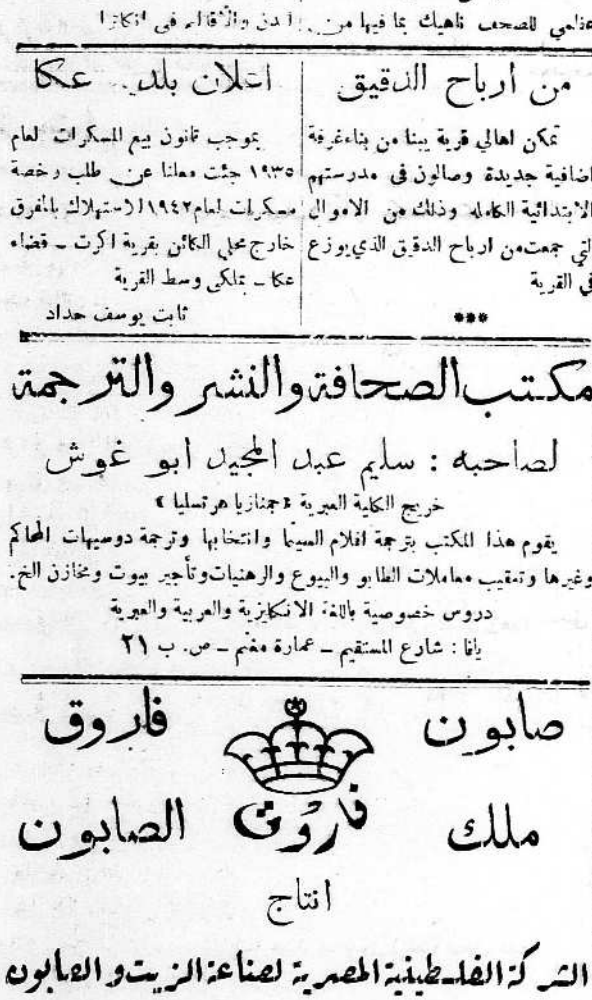 عالمي للصحف ناهيك بما فيها من المدن والأقاليم في انكلترا
من أرباح الدقيق
تمكن اهالي قرية يبنا من بناء غرفة
اضافية جديدة وصالون في مدرستهم
الابتدائية الكاملة وذلك من الاموال
التي جمعت من ارباح الدقيق الذي يوزع
في القرية
***
اعلان بلد. عكا
بموجب قانون بيع المسكرات لعام
١٩٣٥ جئت معلنا عن طلب رخصة
مسكرات لعام ١٩٤٢ لاستهلاك بالمفرق
خارج محلي الكائن بقرية اكرت - قضاء
عكا - بملكي وسط القرية
ثابت يوسف حداد
مكتب الصحافة والنشر والترجمة
لصاحبه : سليم عبد المجيد ابو غوش
خريج الكلية العبرية « جمنازيا هرتسليا »
يقوم هذا المكتب بترجمة افلام السينما وانتخابها وترجمة دوسيهات المحاكم
وغيرها وتعقيب معاملات الطابو والبيوع والرهنيات وتأجير بيوت ومخازن الخ.
دروس خصوصية باللغة الانكليزية والعربية والعبرية
يافا : شارع المستقيم - عمارة مغنم - ص. ب ٢١
صابون فاروق
ملك فاروق الصابون
انتاج
الشركة الفلسطينية المصرية لصناعة الزيت و الصابون